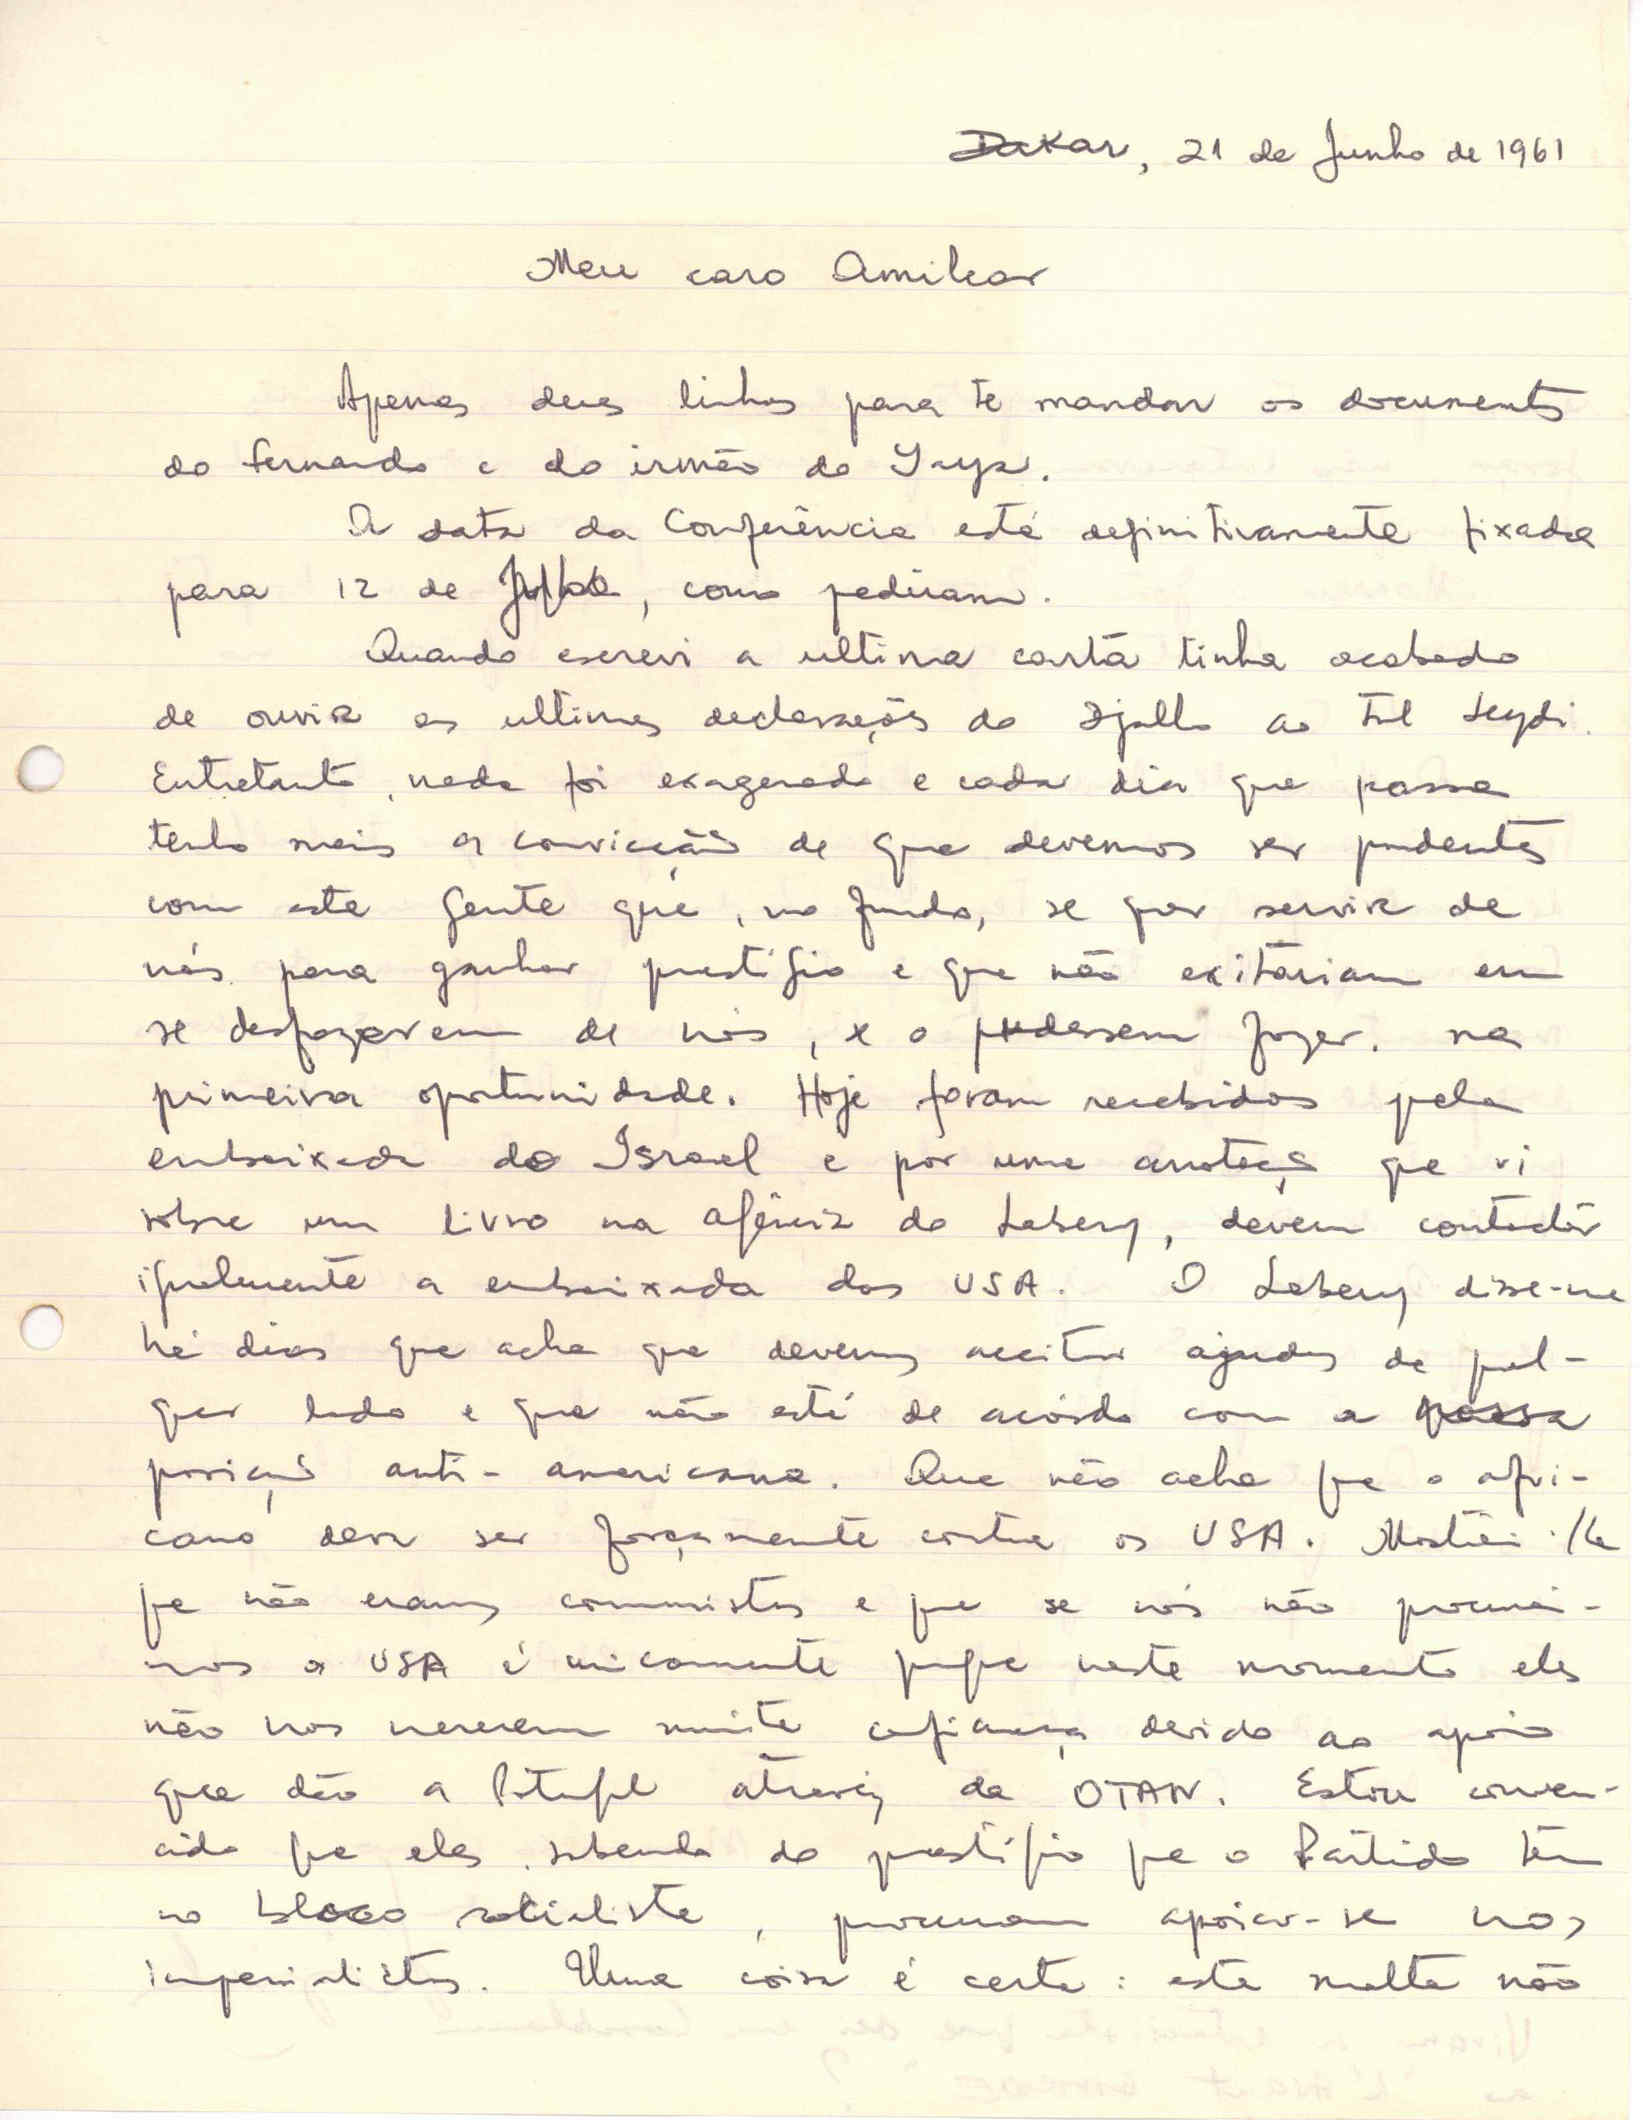 Dakar, 21 de Junho de 1961
Meu caro Amilcar
Apenas duas linhas para te mandar os documentos
do Fernando e do irmão do Yaya.
A data da Conferência está definitivamente fixada
para 12 de Julho, como pediram.
Quando escrevi a ultima carta tinha acabado
de ouvir as ultimas declarações do Djallo ao Leydi.
Entretanto, nada foi exagerado e cada dia que passa
tenho mais a convicção de que devemos ser prudentes
com esta gente que, no fundo, se quer servir de
nós para ganhar prestígio e que não exitariam em
se desfazerem de nós, se o pudessem fazer, na
primeira oportunidade. Hoje foram recebidos pela
embaixada do Israel e por uma anotação que vi
sobre um livro na agência do Labery, devem contactar
igualmente a embaixada dos USA. O Labery disse-me
há dias que acha que devemos aceitar ajudas de qual-
quer lado e que não está de acôrdo com a nossa
posição anti-americana. Que não acha que o afri-
cano deva ser forçosamente contra os USA. Mostrei-lhe
que não eramos comunistas e que se nós não procurá-
mos os USA é unicamente porque neste momento eles
não nos merecem muita confiança devido ao apoio
que dão a Portugal através da OTAN. Estou conven-
cido que eles, sabendo do prestígio que o Partido tem
no bloco socialista, procuram apoiar-se nos
imperialistas. Uma coisa é certa: esta malta não